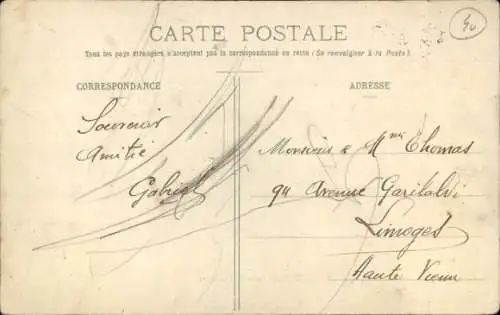 CARTE POSTALE
40
Tous les pays étrangers n'acceptent pas la correspondance au recto (Se renseigner à la Poste)
CORRESPONDANCE
ADRESSE
Souvenir
Amitié
Gabriel
Monsieur & Mme Thomas
94 Avenue Garibaldi
Limoges
Haute Vienne